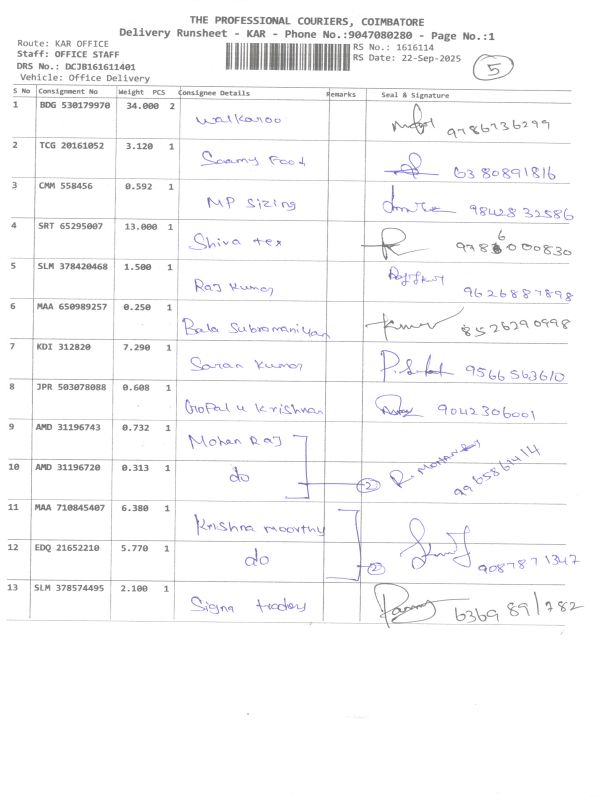 THE PROFESSIONAL COURIERS, COIMBATORE
Delivery Runsheet - KAR - Phone No.:9047080280 - Page No.:1
Route: KAR OFFICE
Staff: OFFICE STAFF
DRS No.: DCJB161611401
Vehicle: Office Delivery
RS No.: 1616114
RS Date: 22-Sep-2025
5
S No Consignment No Weight PCS Consignee Details Remarks Seal & Signature
1 BDG 530179970 34.000 2 Walkaroo 9786736299
2 TCG 20161052 3.120 1 Saamy Food 6380891816
3 CMM 558456 0.592 1 MP Sizing 9842832586
4 SRT 65295007 13.000 1 Shiva tex
5 SLM 378420468 1.500 1 Raj Kumar 9626887898
6 MAA 650989257 0.250 1 Bala Subramaniyan Kumar 8526290998
7 KDI 312820 7.290 1 Saran Kumar 9566563610
8 JPR 503078088 0.608 1 Gopal u Krishnan 9042306001
9 AMD 31196743 0.732 1 Mohan Raj
10 AMD 31196720 0.313 1 do 2 R. Mohanraj 9965861414
11 MAA 710845407 6.380 1 Krishna moorthy
12 EDQ 21652210 5.770 1 do 2 9087871347
13 SLM 378574495 2.100 1 Signa 6369891782